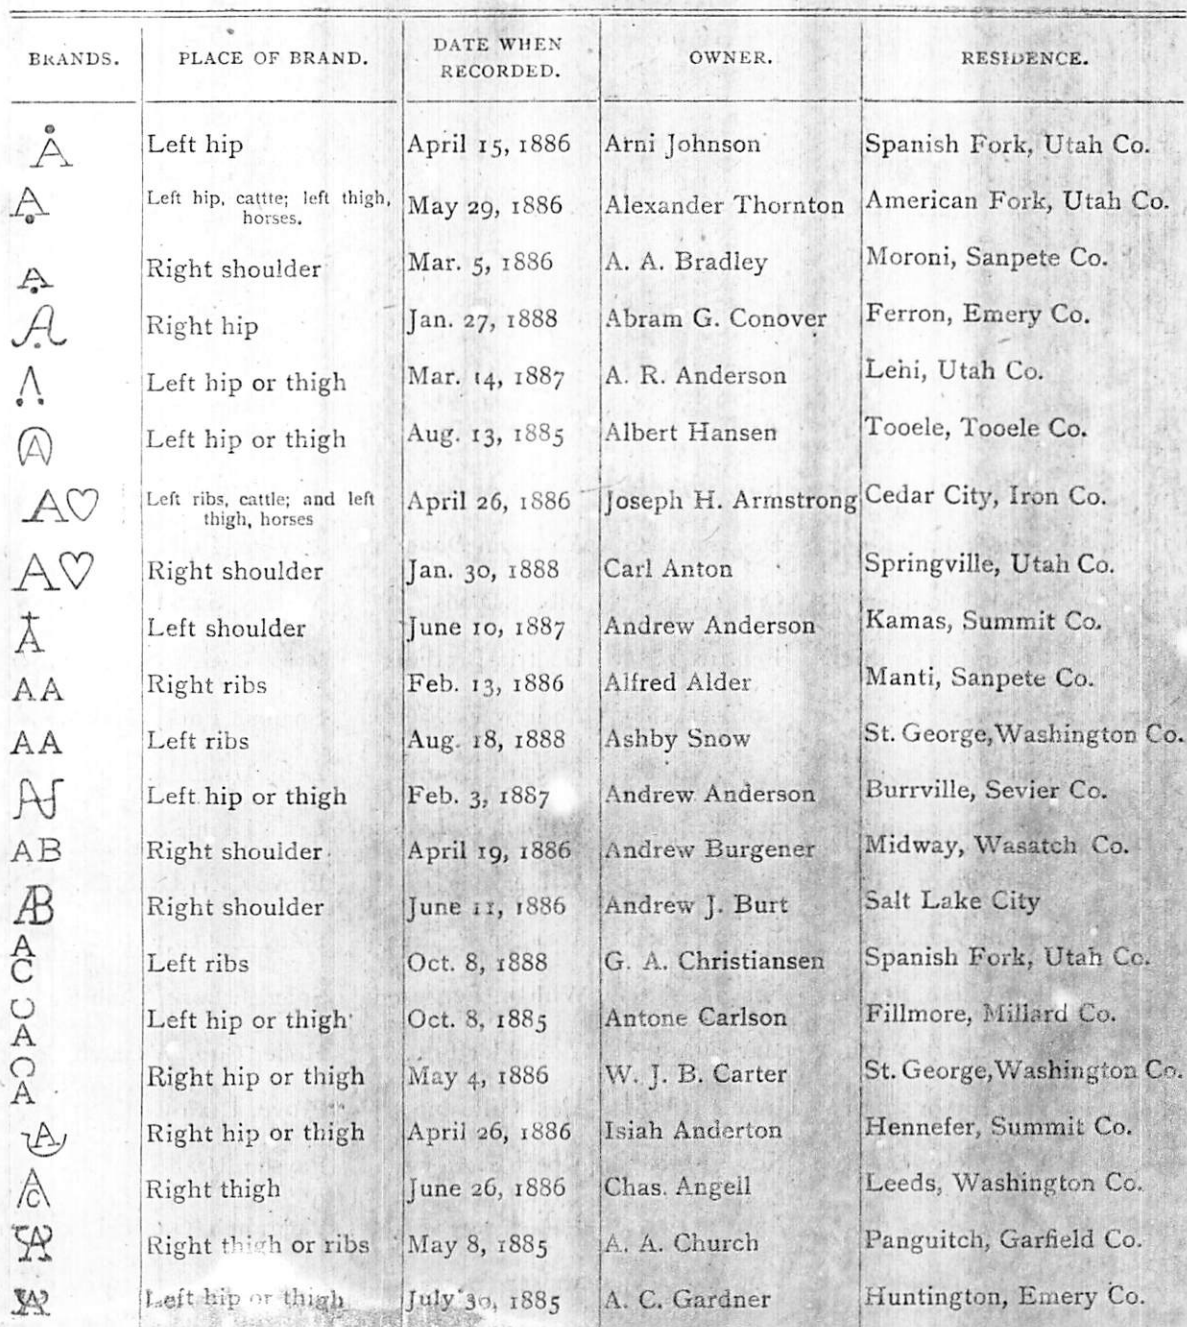 BRANDS. PLACE OF BRAND. DATE WHEN RECORDED. OWNER. RESIDENCE.
A Left hip April 15, 1886 Arni Johnson Spanish Fork, Utah Co.
A Left hip, cattle; left thigh, horses. May 29, 1886 Alexander Thornton American Fork, Utah Co.
A Right shoulder Mar. 5, 1886 A. A. Bradley Moroni, Sanpete Co.
A Right hip Jan. 27, 1888 Abram G. Conover Ferron, Emery Co.
Left hip or thigh Mar. 14, 1887 A. R. Anderson Lehi, Utah Co.
A Left hip or thigh Aug. 13, 1885 Albert Hansen Tooele, Tooele Co.
A♡ Left ribs, cattle; and left thigh, horses April 26, 1886 Joseph H. Armstrong Cedar City, Iron Co.
A♡ Right shoulder Jan. 30, 1888 Carl Anton Springville, Utah Co.
A Left shoulder June 10, 1887 Andrew Anderson Kamas, Summit Co.
AA Right ribs Feb. 13, 1886 Alfred Alder Manti, Sanpete Co.
AA Left ribs Aug. 18, 1888 Ashby Snow St. George, Washington Co.
Left hip or thigh Feb. 3, 1887 Andrew Anderson Burrville, Sevier Co.
AB Right shoulder April 19, 1886 Andrew Burgener Midway, Wasatch Co.
AB Right shoulder June 11, 1886 Andrew J. Burt Salt Lake City
A C Left ribs Oct. 8, 1888 G. A. Christiansen Spanish Fork, Utah Co.
C A Left hip or thigh Oct. 8, 1885 Antone Carlson Fillmore, Millard Co.
C A Right hip or thigh May 4, 1886 W. J. B. Carter St. George, Washington Co.
A Right hip or thigh April 26, 1886 Isiah Anderton Hennefer, Summit Co.
AC Right thigh June 26, 1886 Chas. Angell Leeds, Washington Co.
Right thigh or ribs May 8, 1885 A. A. Church Panguitch, Garfield Co.
Left hip or thigh July 30, 1885 A. C. Gardner Huntington, Emery Co.